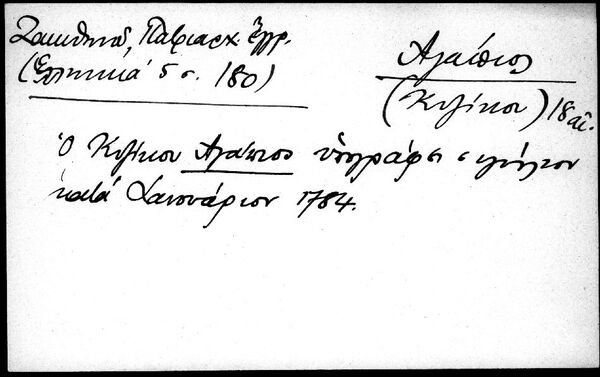 Ζακυθηνοῦ, Πατριαρχ. Ἔγγρ.
(Ἑλληνικά 5 σ. 180)
Ἀγάπιος
(Κυζίκου) 18 αἰ.
Ὁ Κυζίκου Ἀγάπιος ὑπογράφει
κατά Ἰανουάριον 1784.